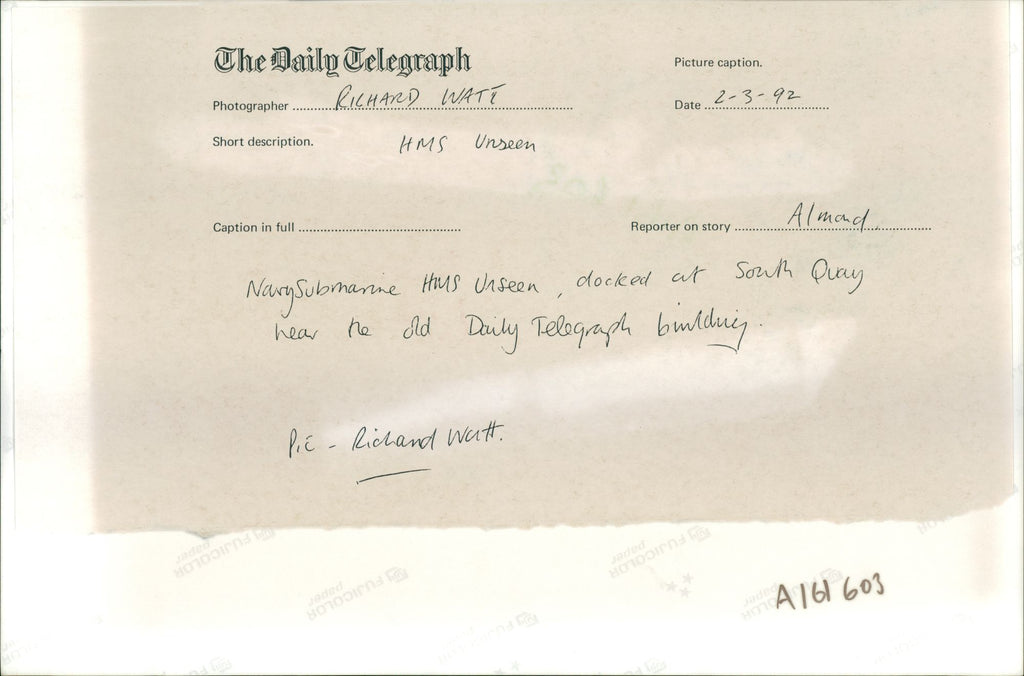 The Daily Telegraph
Picture caption.
Photographer RICHARD WATT
Date 2-3-92
Short description. HMS Unseen
Caption in full
Reporter on story Almond
Navy Submarine HMS Unseen, docked at South Quay
near the old Daily Telegraph building.
Pic - Richard Watt.
FUJICOLOR
paper
FUJICOLOR
paper
FUJICOLOR
paper
FUJICOLOR
paper
A161603